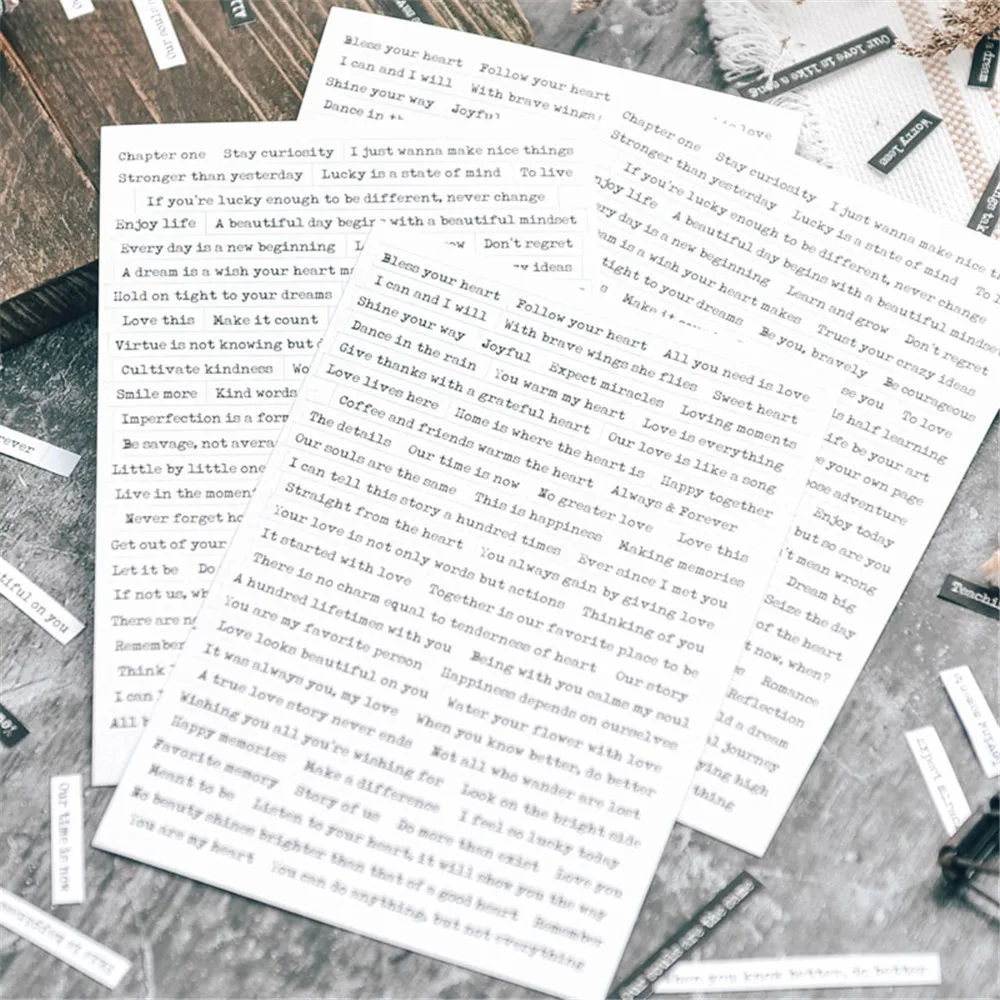 Our souls
Our love is like a song
a dream
Worry less
Bless your heart Follow your heart
I can and I will With brave wings
Shine your way Joyful
Dance in
love
Chapter one Stay curiosity I just wanna make nice things
Stronger than yesterday Lucky is a state of mind To live
If you're lucky enough to be different, never change
Enjoy life A beautiful day begins with a beautiful mindset
Every day is a new beginning Don't regret
A dream is a wish your heart ideas
Hold on tight to your dreams
Love this Make it count
Virtue is not knowing but
Cultivate kindness
Smile more Kind words
Imperfection is a form
Be savage, not
Little by little one
Live in the moment
Never forget
Get out of your
Let it be Do
If not us,
There are
Remember
Think
I can
All
Chapter one Stay curiosity I just wanna make nice
Stronger than yesterday Lucky is a state of mind To
If you're lucky enough to be different, never change
Enjoy life A beautiful day begins with a beautiful mindset
day is a new beginning Learn and grow Don't regret
is a wish your heart makes Trust your crazy ideas
tight to your dreams Be you, bravely Be courageous
Make it you To love
is half learning
life be your art
your own page
adventure
Enjoy today
but so are you
mean wrong
Dream big
Seize the day
of the heart
not now, when?
Romance
Reflection
a dream
journey
high
thing
Bless your heart Follow your heart All you need is love
I can and I will With brave wings she flies Sweet heart
Shine your way Joyful Expect miracles Loving moments
Dance in the rain You warm my heart Love is everything
Give thanks with a grateful heart Our love is like a song
Love lives here Home is where the heart is Happy together
Coffee and friends warms the heart Always & Forever
The details Our time is now No greater love Love this
Our souls are the same This is happiness Making memories
I can tell this story a hundred times Ever since I met you
Straight from the heart You always gain by giving love
Your love is not only words but actions Thinking of you
It started with love Together is our favorite place to be
There is no charm equal to tenderness of heart Our story
A hundred lifetimes with you Being with you calms my soul
You are my favorite person Happiness depends on ourselves
Love looks beautiful on you Water your flower with love
It was always you, my love When you know better, do better
A true love story never ends Not all who wander are lost
Wishing you all you're wishing for Look on the bright side
Happy memories Make a difference I feel so lucky today
Favorite memory Story of us Do more than exist Love you
Meant to be Listen to your heart, it will show you the way
No beauty shines brighter than that of a good heart Remember
You are my heart You can do anything, but not everything
on you
Our time is now
This is happiness
Our souls are the same
When you know better, do better